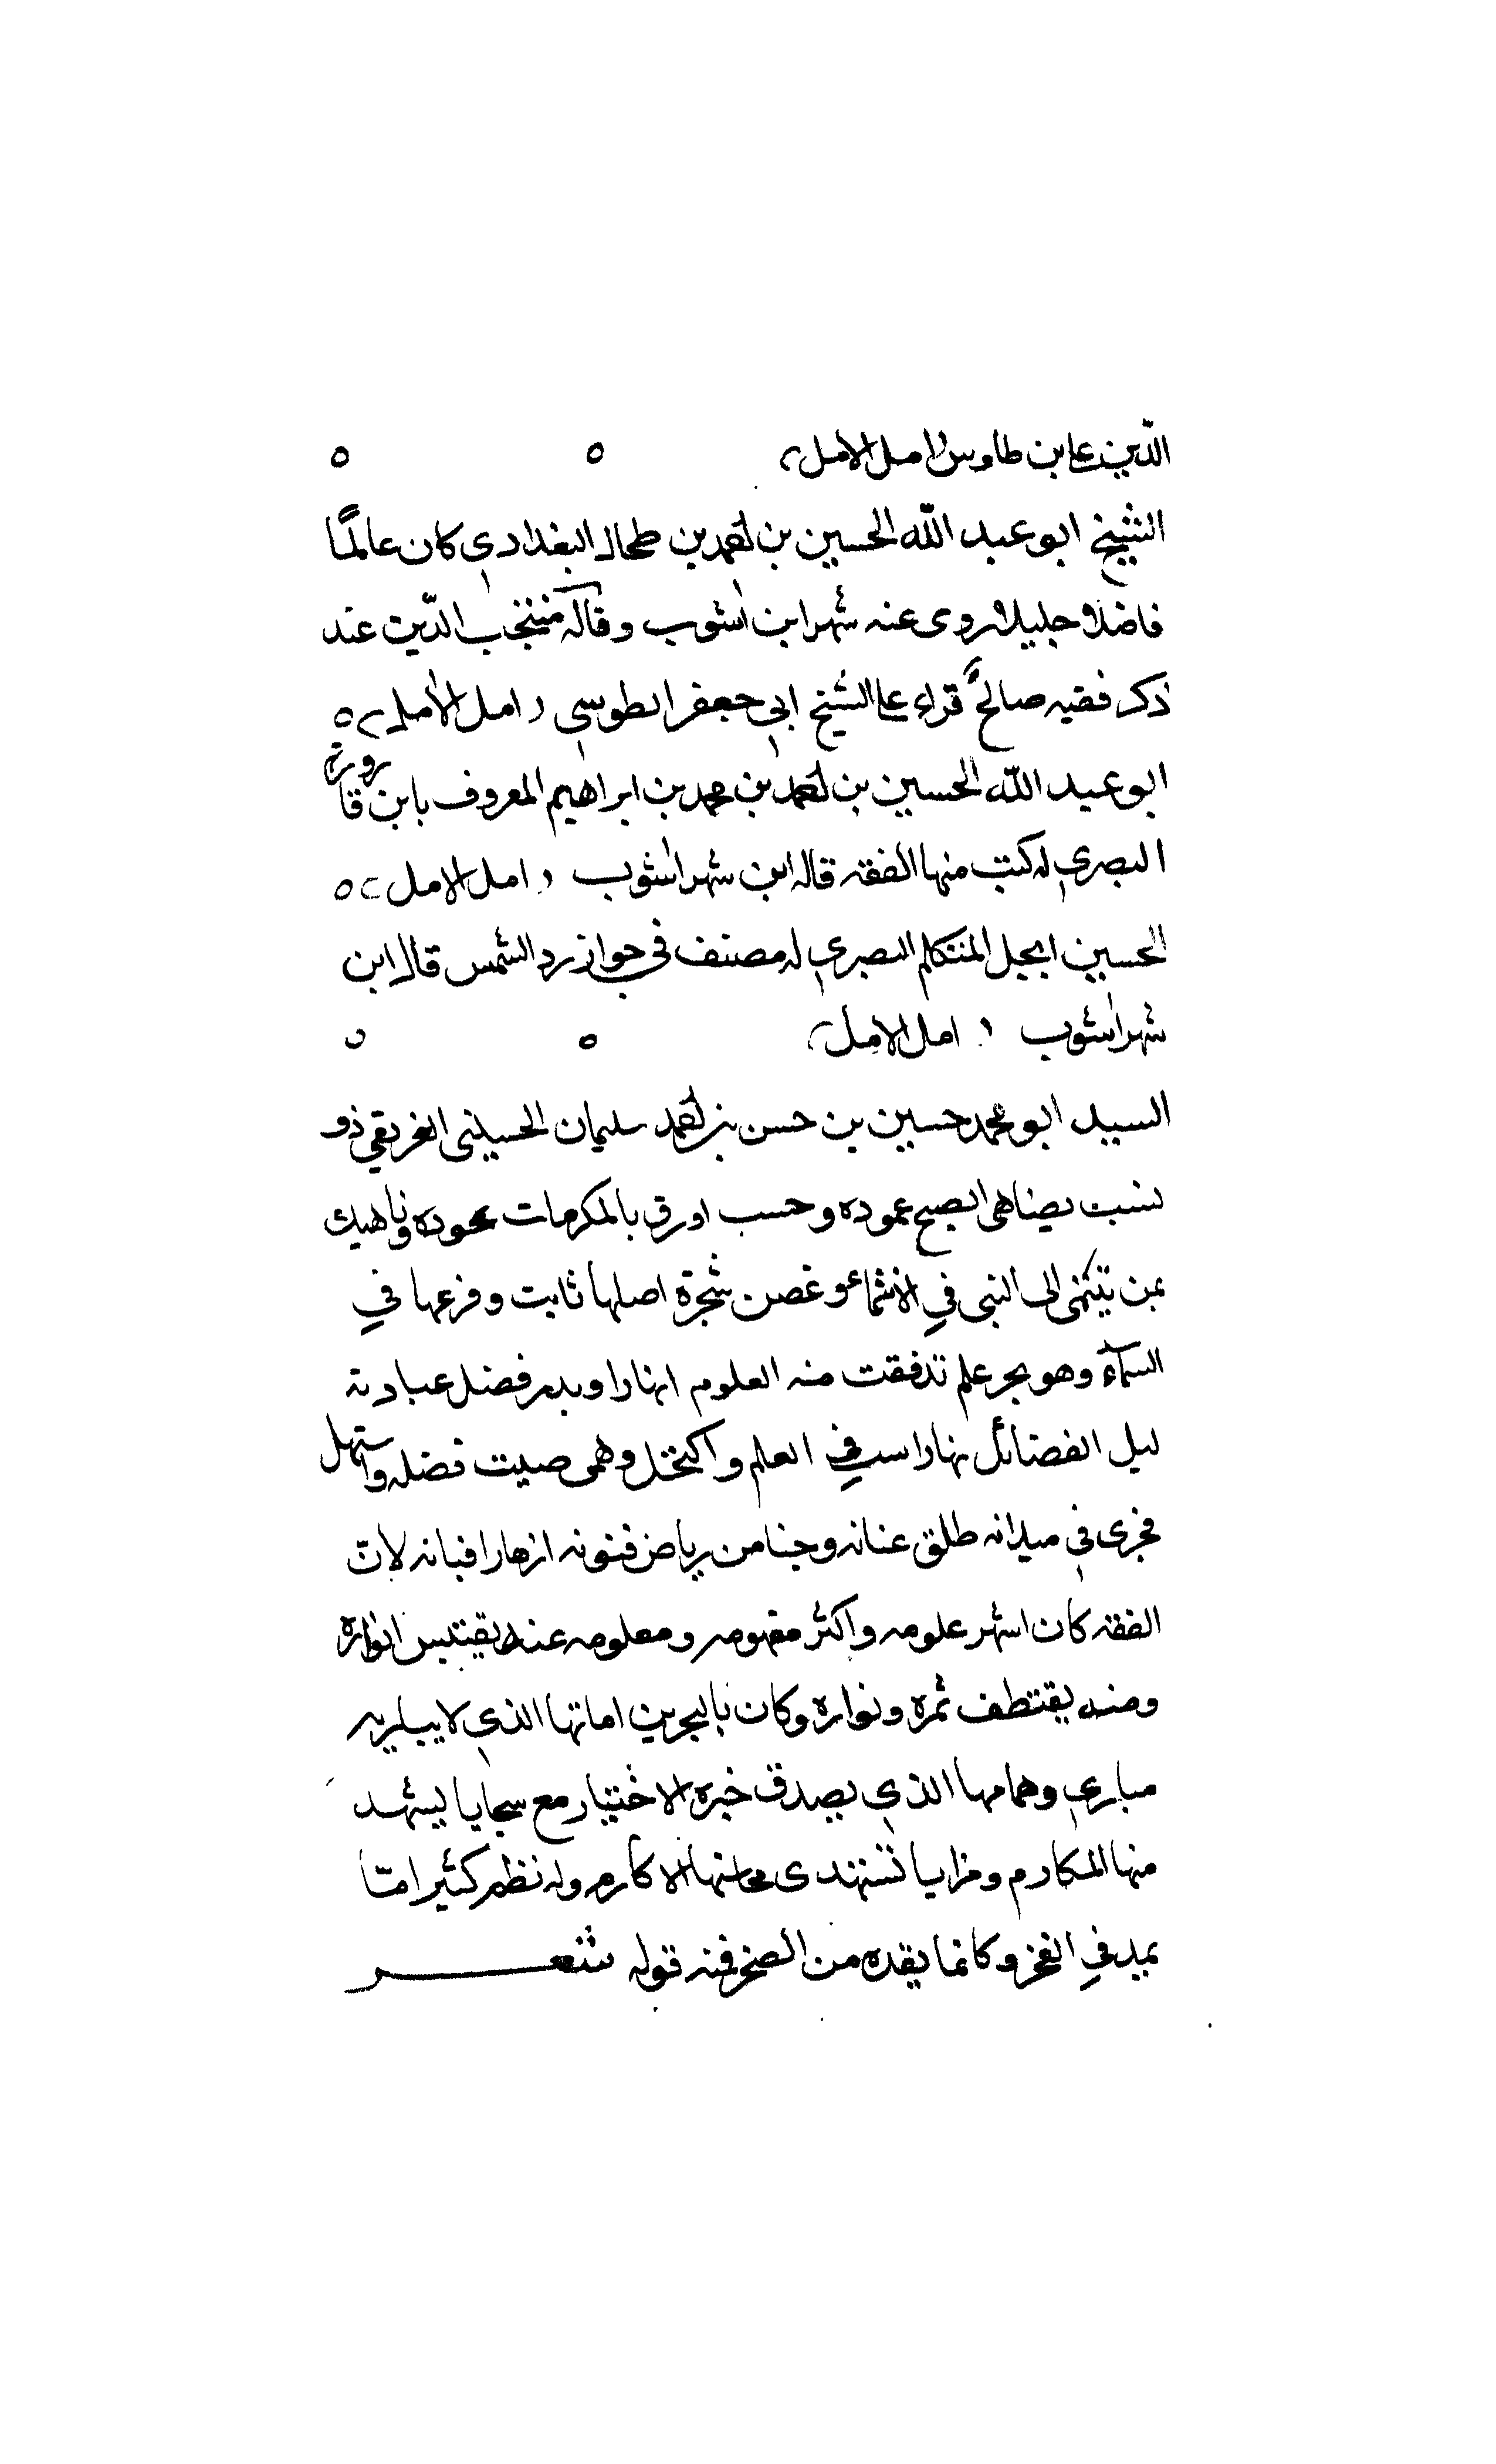 الدّين علي بن طاوس امل الامل
الشيخ ابو عبد الله الحسين بن احمد بن طحال البغدادي كان عالمًا
فاضلا جليلا روى عنه شهرابن اشوب وقاله منتخب الدّين عند
ذكر فقيه صالحٌ قراء على الشيخ ابي جعفر الطوسي ر امل الامل
ابو عبد الله الحسين بن احمد بن محمد بن ابراهيم المعروف بابن قاروره
البصري له كتب منها الفقه قاله ابن شهراشوب ر امل الامل
الحسين الجمل المتكلم البصري له مصنف في جواز رد الشمس قال ابن
شهراشوب ر امل الامل
السيد ابو محمد حسين بن حسن بن احمد سليمان الحسيني الغريقي ذو
نسب يضاهى الصبح عموده وحسب اورق بالمكرمات عوده وناهيك
بمن ينتمى الى النبى في الانتماء وغصن شجرة اصلها ثابت وفرعها في
السمآء وهو بحر علم تدفقت منه العلوم انهارا وبدر فضل عبادته
ليل الفضائل نهارا في العلم واكتحل وهمى صيت فضله واستهل
فجرى في ميدانه طلق عنانه وجنا من رياض فنونه ازهار افنانه لانّ
الفقه كان اشهر علومه واكثر مفهومه ومعلومه عنه يقتبس انواره
ومنه يقتطف ثمره ونواره وكان بالبحرين امامها الذي لا يباريه
مباري وهمامها الذي يصدق خبره الاختيار مع سجايا يشهد
منها المكارم ومزايا تستهدى محاسنها الاكارم وله نظم كثير امّا
يمد في الفخر وكانما يقده من الصخر فمنه قوله شعر